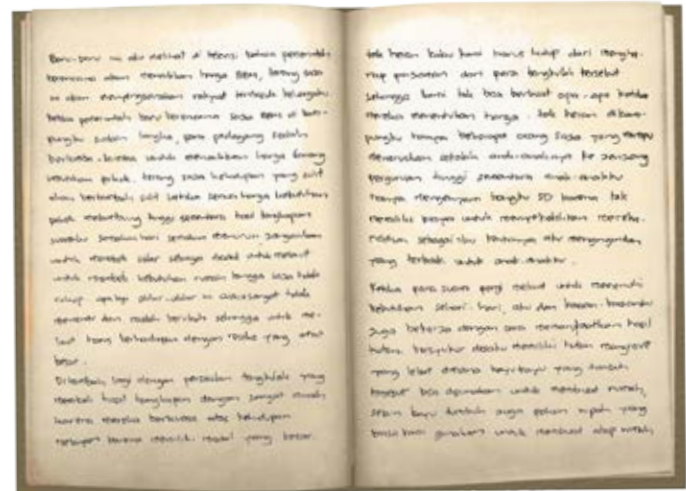 Baru-baru ini aku melihat di televisi bahwa pemerintah
berencana akan menaikkan harga BBM, terang saja
ini akan menyengsarakan rakyat termasuk keluargaku.
ketika pemerintah baru berencana saja BBM di kam-
pungku sudah langka, para pedagang seolah
berlomba-lomba untuk menaikkan harga barang
kebutuhan pokok. terang saja kehidupan yang sulit
akan bertambah sulit ketika semua harga kebutuhan
pokok melambung tinggi sementara hasil tangkapan
suamiku semakin hari semakin menurun. jangankan
untuk membeli solar sebagai modal untuk melaut
untuk membeli kebutuhan rumah tangga saja tidak
cukup. apalagi akhir-akhir ini cuaca sangat tidak
menentu dan mudah berubah sehingga untuk me-
laut harus berhadapan dengan resiko yang amat
besar.
Ditambah lagi dengan persoalan tengkulak yang
membeli hasil tangkapan dengan sangat murah
karena mereka berkuasa atas kehidupan
nelayan karena memiliki modal yang besar.
tak heran kalau kami harus hidup dari mengha-
rap pinjaman dari para tengkulak tersebut
sehingga kami tak bisa berbuat apa-apa ketika
mereka menentukan harga. tak heran dikam-
pungku hanya beberapa orang saja yang mampu
meneruskan sekolah anak-anaknya ke jenjang
perguruan tinggi sementara anak-anakku
hanya mengenyam bangku SD karena tak
memiliki biaya untuk menyekolahkan mereka.
padahal sebagai ibu tentunya aku menginginkan
yang terbaik untuk anak-anakku.
Ketika para suami pergi melaut untuk memenuhi
kebutuhan sehari-hari, aku dan kawan-kawanku
juga bekerja dengan cara memanfaatkan hasil
hutan. bersyukur desaku memiliki hutan mangrove
yang lebat dimana kayu-kayu yang tumbuh
tersebut bisa digunakan untuk membuat rumah,
selain kayu tumbuh juga pohon nipah yang
biasa kami gunakan untuk membuat atap rumah,